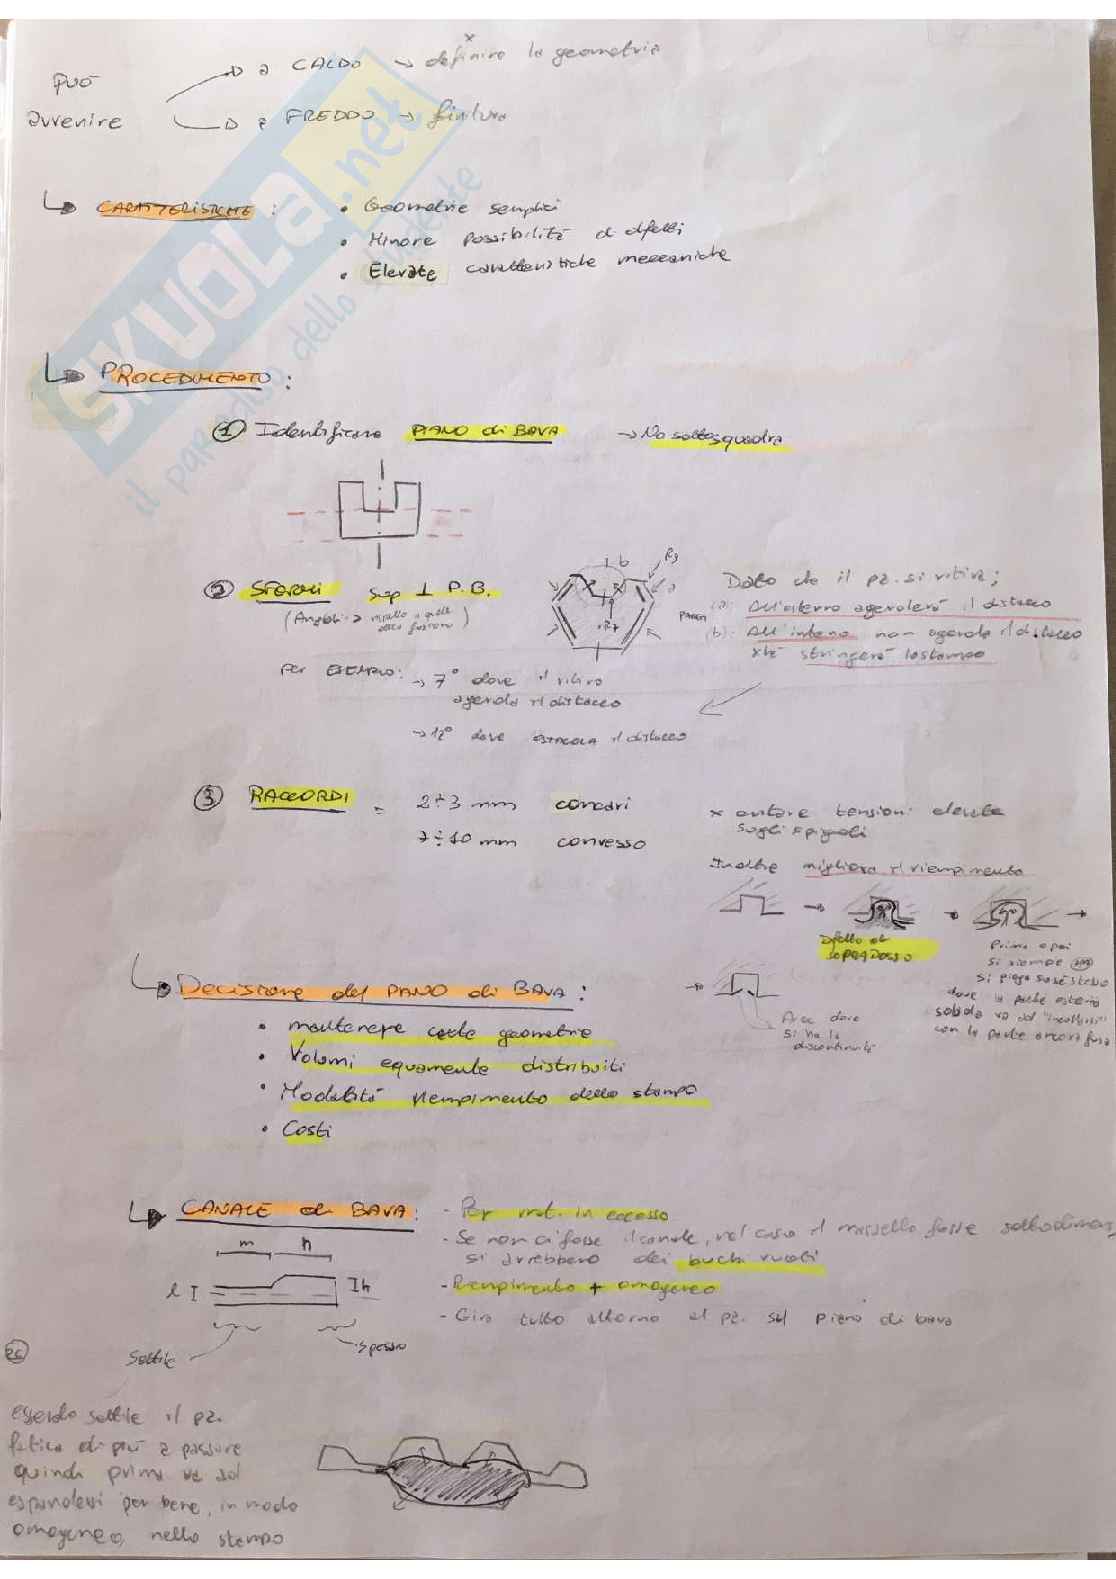 Può
avvenire
a CALDO → x definire la geometria
a FREDDO → finitura
CARATTERISTICHE :
• Geometrie semplici
• Minore possibilità di difetti
• Elevate caratteristiche meccaniche
PROCEDIMENTO :
① Identificare PIANO di BAVA → No sottosquadra
② SFORMI Sup ⊥ P.B.
(Angoli > rispetto a quelli
della fusione)
b
R3
a
Dato che il pz. si ritira ;
(a): All'esterno agevolerà il distacco
(b): All'interno non agevola il distacco
xké stringerà lo stampo
Per ESEMPIO: → 7° dove il ritiro
agevola il distacco
→ 12° dove ostacola il distacco
③ RACCORDI = 2÷3 mm concavi
7÷10 mm convesso
x evitare tensioni elevate
sugli spigoli
Inoltre migliora il riempimento
Difetto di
SOPRADOSSO
Prima o poi
si riempie
si piega su sé stesso
dove la parte esterna
solida va ad "incollarsi"
con la parte ancora fusa
Area dove
si ha la
discontinuità
Decisione del PIANO di BAVA :
• mantenere certe geometrie
• Volumi equamente distribuiti
• Modalità riempimento dello stampo
• Costi
CANALE di BAVA :
- Per mat. in eccesso
- Se non ci fosse il canale, nel caso il massello fosse sottodimens
si avrebbero dei buchi vuoti
- Riempimento + omogeneo
- Gira tutto attorno al pz. sul piano di bava
m n
l h
Sottile
Spesso
essendo sottile il pz.
fatica di più a passare
quindi prima va ad
espandersi per bene, in modo
omogeneo, nello stampo
SKUOLA.net
il paradiso dello studente